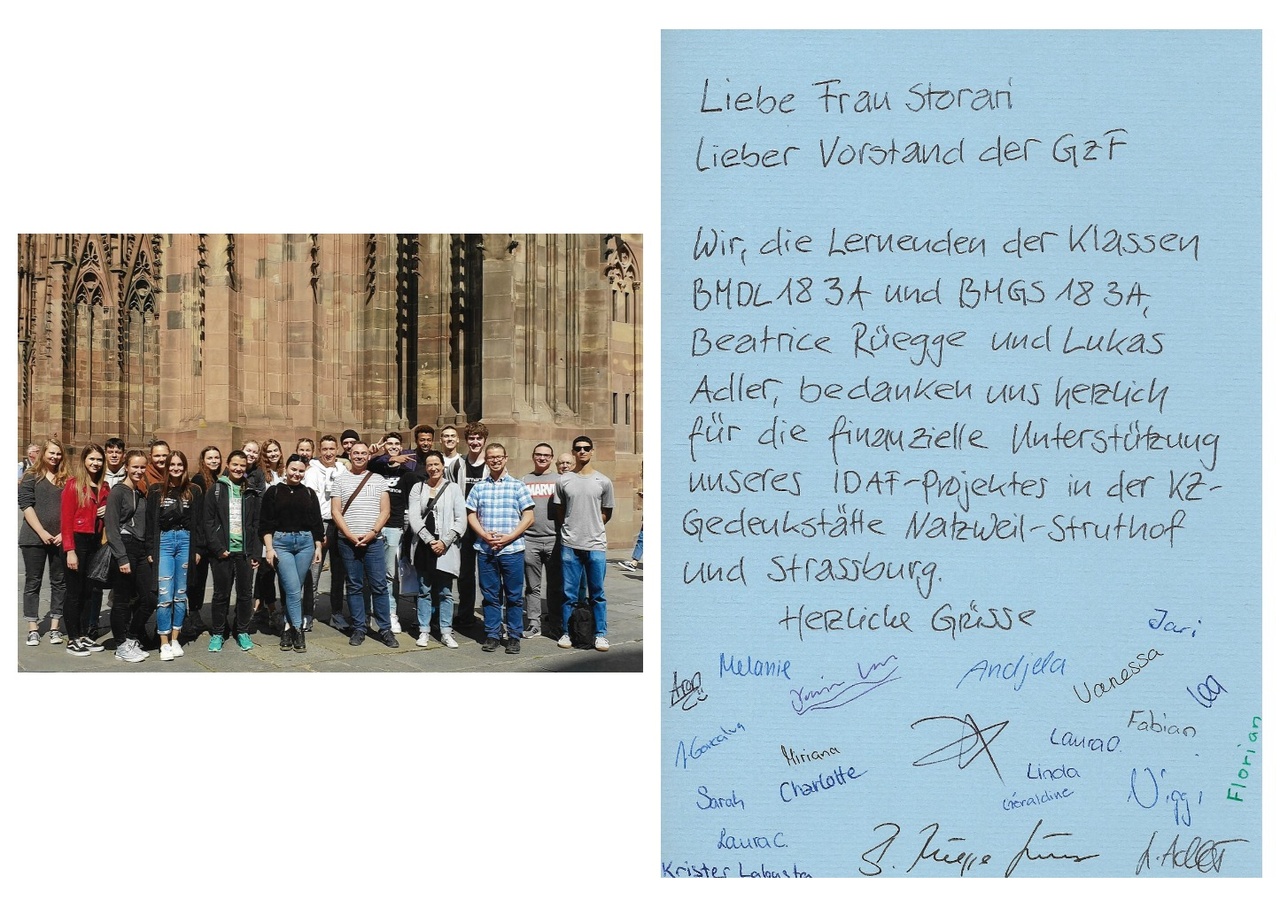 MARV
Liebe Frau Storari
Lieber Vorstand der GzF
Wir, die Lernenden der Klassen
BMDL18 3A und BMGS 18 3A,
Beatrice Rüegge und Lukas
Adler, bedanken uns herzlich
für die finanzielle Unterstützung
unseres IDAF-Projektes in der KZ-
Gedenkstätte Natzweil-Struthof
und Strassburg.
Herzliche Grüsse
Jari
Aron
Melanie
Andjela
Vanessa
Lea
Fabian
Laura O.
Miriana
Charlotte
Linda
Géraldine
Viggi
Florian
Sarah
Laura C.
B. Rüegge
L. Adler
Krister Labusta